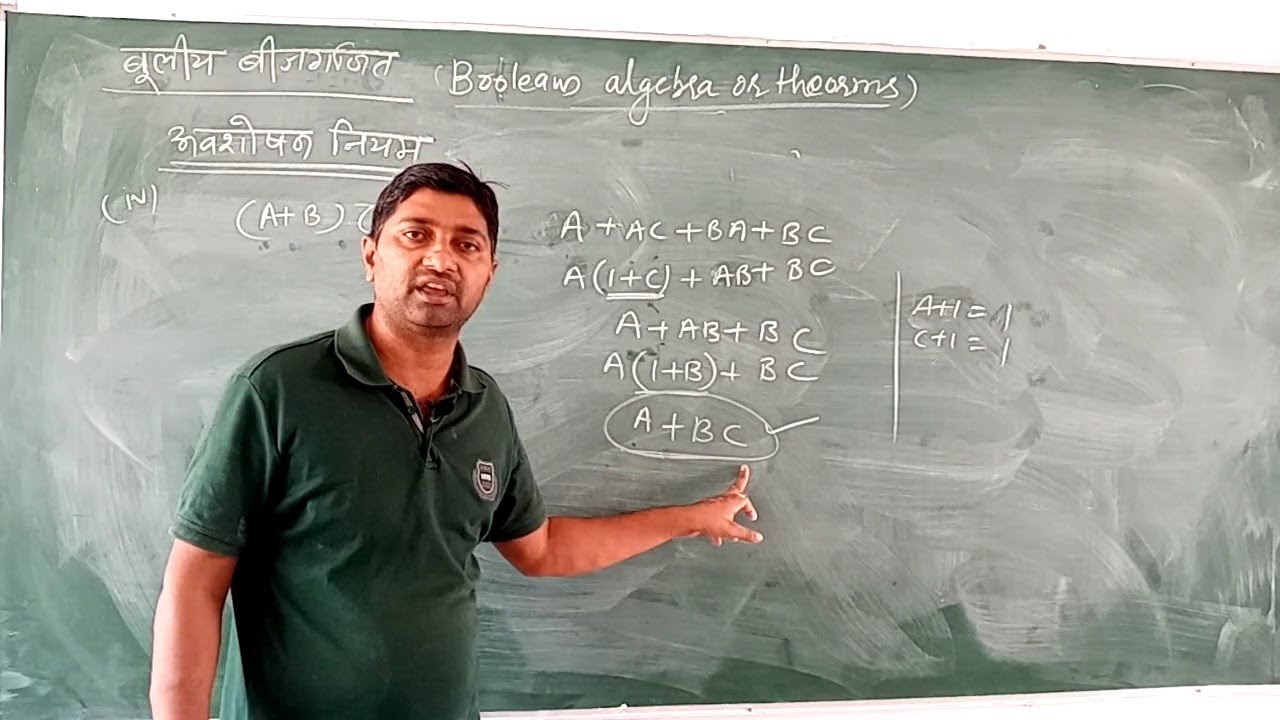 बूलीय बीजगणित (Booleans algebra or theorms)
अवशोषण नियम
(iv) (A+B)
A + AC + BA + BC
A(1+C) + AB + BC
A + AB + BC
A(1+B) + BC
A + BC
A+1 = 1
C+1 = 1